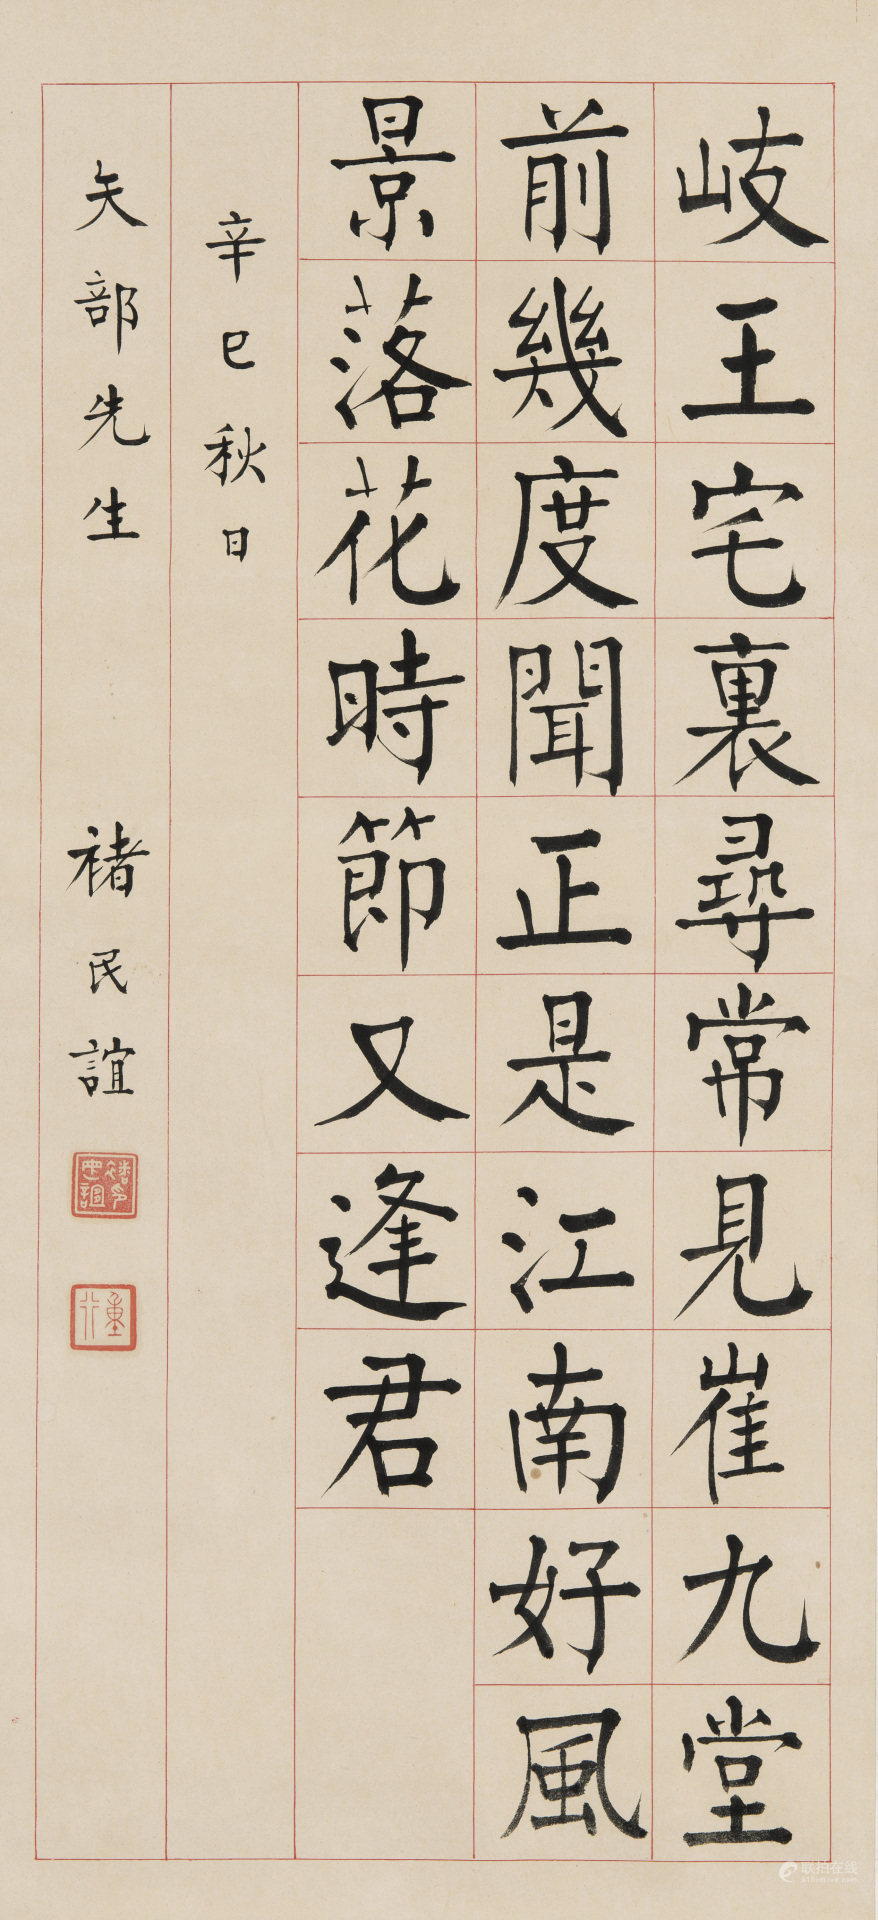 岐王宅裏尋常見崔九堂
前幾度聞正是江南好風
景落花時節又逢君
辛巳秋日
矢部先生 褚民誼
褚民誼印
重行
联拍在线